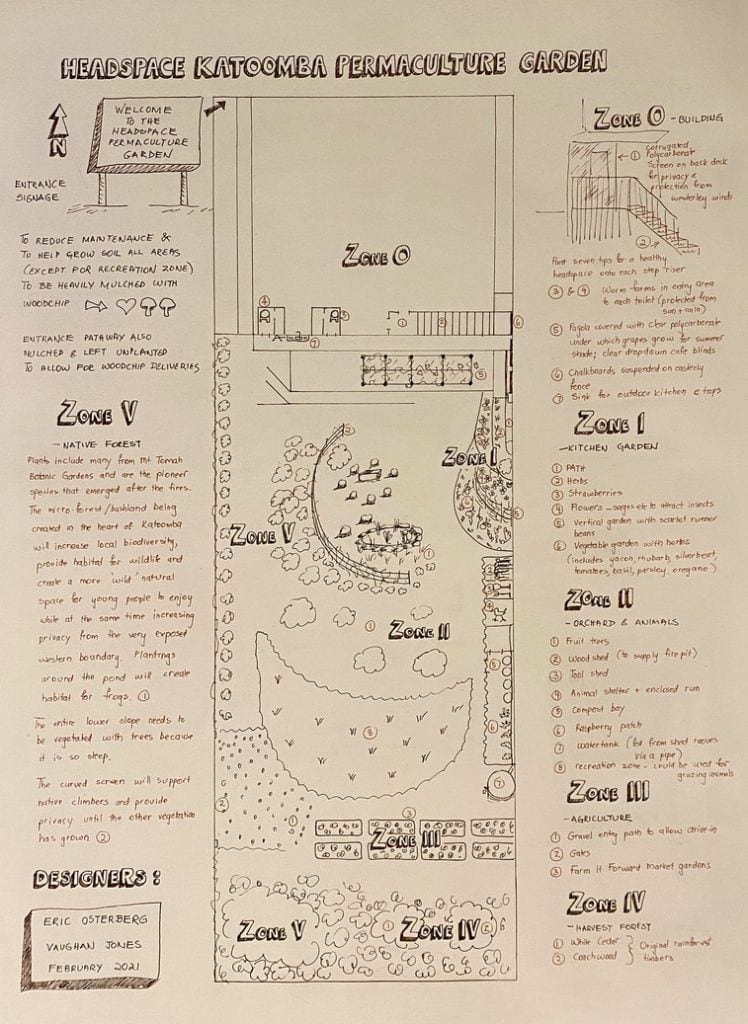 HEADSPACE KATOOMBA PERMACULTURE GARDEN
N
WELCOME
TO THE
HEADSPACE
PERMACULTURE
GARDEN
ENTRANCE
SIGNAGE
TO REDUCE MAINTENANCE &
TO HELP GROW SOIL ALL AREAS
(EXCEPT FOR RECREATION ZONE)
TO BE HEAVILY MULCHED WITH
WOODCHIP
ENTRANCE PATHWAY ALSO
MULCHED & LEFT UNPLANTED
TO ALLOW FOR WOODCHIP DELIVERIES
ZONE V
- NATIVE FOREST
Plants include many from Mt Tomah
Botanic Gardens and are the pioneer
species that emerged after the fires.
The micro-forest/bushland being
created in the heart of Katoomba
will increase local biodiversity,
provide habitat for wildlife and
create a more wild natural
space for young people to enjoy
while at the same time increasing
privacy from the very exposed
western boundary. Plantings
around the pond will create
habitat for frogs. ①
The entire lower slope needs to
be vegetated with trees because
it is so steep.
The curved screen will support
native climbers and provide
privacy until the other vegetation
has grown ②
DESIGNERS:
ERIC OSTERBERG
VAUGHAN JONES
FEBRUARY 2021
ZONE O
④
③
①
②
⑥
⑦
⑤
ZONE I
ZONE V
①
①
ZONE II
③
④
⑤
⑥
⑧
⑦
②
①
③
ZONE III
ZONE V
①
ZONE IV
②
ZONE O - BUILDING
① corrugated
Polycarbonate
Screen on back deck
for privacy &
protection from
westerley winds
②
Post seven tips for a healthy
headspace onto each step riser
③ & ④ Worm farms in entry area
to each toilet (protected from
sun + rain)
⑤ Pagola covered with clear polycarbonate
under which grapes grow for summer
shade; clear dropdown cafe blinds
⑥ Chalkboards suspended on easterly
fence
⑦ Sink for outdoor kitchen & taps
ZONE I
- KITCHEN GARDEN
① PATH
② Herbs
③ Strawberries
④ Flowers - sages etc to attract insects
⑤ Vertical garden with scarlet runner
beans
⑥ Vegetable garden with herbs
(includes yacon, rhubarb, silverbeet,
tomatoes, basil, parsley, oregano)
ZONE II
- ORCHARD & ANIMALS
① Fruit trees
② Wood shed (to supply fire pit)
③ Tool shed
④ Animal shelter + enclosed run
⑤ Compost bay
⑥ Raspberry patch
⑦ watertank (fed from shed rooves
via a pipe)
⑧ recreation zone - could be used for
grazing animals
ZONE III
- AGRICULTURE
① Gravel entry path to allow drive-in
② Gates
③ Farm It Forward market gardens
ZONE IV
- HARVEST FOREST
① White Cedar
② Coachwood
Original rainforest
timbers